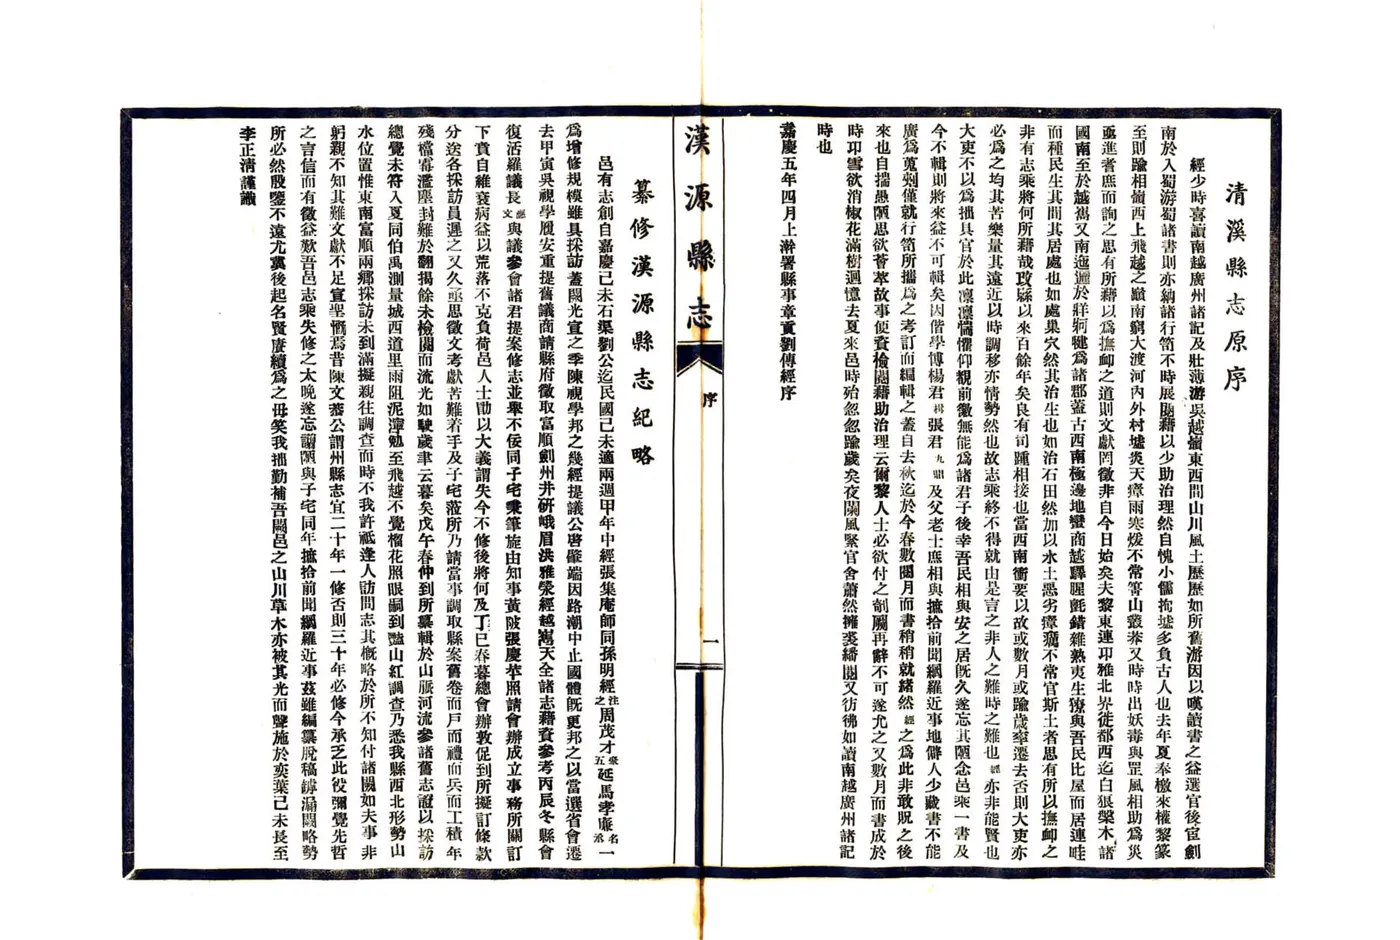 清溪縣志原序
經少時喜讀南越廣州諸記及壯薄游吳越嶺東西間山川風土歷歷如所舊游因以嘆讀書之益選官後宦劍
南於入蜀游蜀諸書則亦納諸行笥不時展閱藉以少助治理然自愧小儒拘墟多負古人也去年夏奉檄來權黎篆
至則踰相嶺西上飛越之巔南窮大渡河內外村墟炎天瘴雨寒煖不常箐山叢莽又時時出妖毒與罡風相助為災
亟進耆庶而詢之思有所藉以為撫卹之道則文獻罔徵非自今日始矣夫黎東連邛雅北界徙都西迄白狼槃木諸
國南至於越嶲又南迤邐於牂牁犍為諸郡蓋古西南極邊地蠻商越驛腥氈錯雜熟夷生獠與吾民比屋而居連畦
而種民生其間其居處也如處巢穴然其治生也如治石田然加以水土惡劣瘴癘不常官斯土者思有所以撫卹之
非有志乘將何所藉哉改縣以來百餘年矣良有司踵相接也當西南衝要以故或數月或踰歲率遷去否則大吏亦
必為之均其苦樂量其遠近以時調移亦情勢然也故志乘終不得就由是言之非人之難時之難也經亦非能賢也
大吏不以為拙具官於此凜凜惴懼仰覩前徽無能為諸君子後幸吾民相與安之居旣久遂忘其陋念邑乘一書及
今不輯則將來益不可輯矣因偕學博楊君楫張君九鼎及父老士庶相與摭拾前聞網羅近事地僻人少藏書不能
廣為蒐剡僅就行笥所攜為之考訂而編輯之蓋自去秋迄於今春數閱月而書稍稍就緒然經之為此非敢貺之後
來也自揣愚陋思欲薈萃故事便資檢閱藉助治理云爾黎人士必欲付之剞劂再辭不可遂允之又數月而書成於
時邛雪欲消椒花滿樹迴憶去夏來邑時殆忽忽踰歲矣夜闌風緊官舍蕭然擁裘繙閱又彷彿如讀南越廣州諸記
時也
嘉慶五年四月上澣署縣事章貢劉傳經序
漢源縣志
序
一
纂修漢源縣志紀略
邑有志創自嘉慶己未石渠劉公迄民國己未適兩週甲年中經張集庵師同孫明經注之周茂才濴五延馬孝廉名丞一
為增修規模雖具採訪蓋闕光宣之季陳視學邦之幾經提議公啓肇端因路潮中止國體旣更邦之以當選省會遷
去甲寅吳視學履安重提舊議商請縣府徵取富順劍州井研峨眉洪雅滎經越嶲天全諸志藉資參考丙辰冬縣會
復活羅議長經文與議參會諸君提案修志並舉不佞同子宅秉筆旋由知事黃陂張慶苹照請會辦成立事務所關訂
下賁自維衰病益以荒落不克負荷邑人士勖以大義謂失今不修後將何及丁巳春暮總會辦敦促到所擬訂條款
分送各採訪員遲之又久亟思徵文考獻苦難着手及子宅蒞所乃請當事調取縣案舊卷而戶而禮而兵而工積年
殘檔霉濫塵封難於翻揭餘未檢閱而流光如駛歲聿云暮矣戊午春仲到所纂輯於山脈河流參諸舊志證以採訪
總覺未符入夏同伯禹測量城西道里雨阻泥濘勉至飛越不覺榴花照眼嗣到豔山紅調查乃悉我縣西北形勢山
水位置惟東南富順兩鄉採訪未到滿擬親往調查而時不我許祗逢人訪問志其概略於所不知付諸闕如夫事非
躬親不知其難文獻不足宣聖慨焉昔陳文恭公謂州縣志宜二十年一修否則三十年必修今承乏此役彌覺先哲
之言信而有徵益歎吾邑志乘失修之太晚遂忘譾陋與子宅同年摭拾前聞網羅近事茲雖編纂脫稿罅漏闕略勢
所必然殷鑒不遠尤冀後起名賢賡續為之毋笑我拙勤補吾闕邑之山川草木亦被其光而聲施於奕葉已未長至
李正清謹識